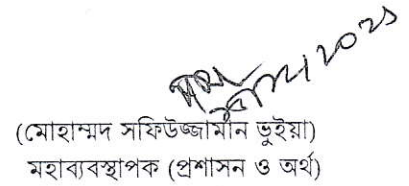 (মোহাম্মদ সফিউজ্জামান ভুইয়া)
মহাব্যবস্থাপক (প্রশাসন ও অর্থ)